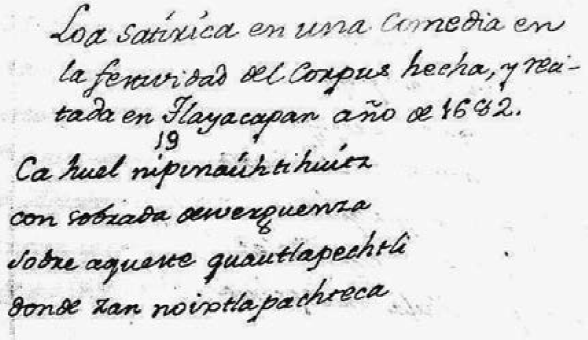 Loa satírica en una Comedia en
la festividad del Corpus hecha, y reci-
tada en Tlayacapan año de 1682.
19
Ca huel nipinaúhtihuitz
con sobrada desverguenza
sobre aqueste quautlapechtli
donde zan noixtlapachteca